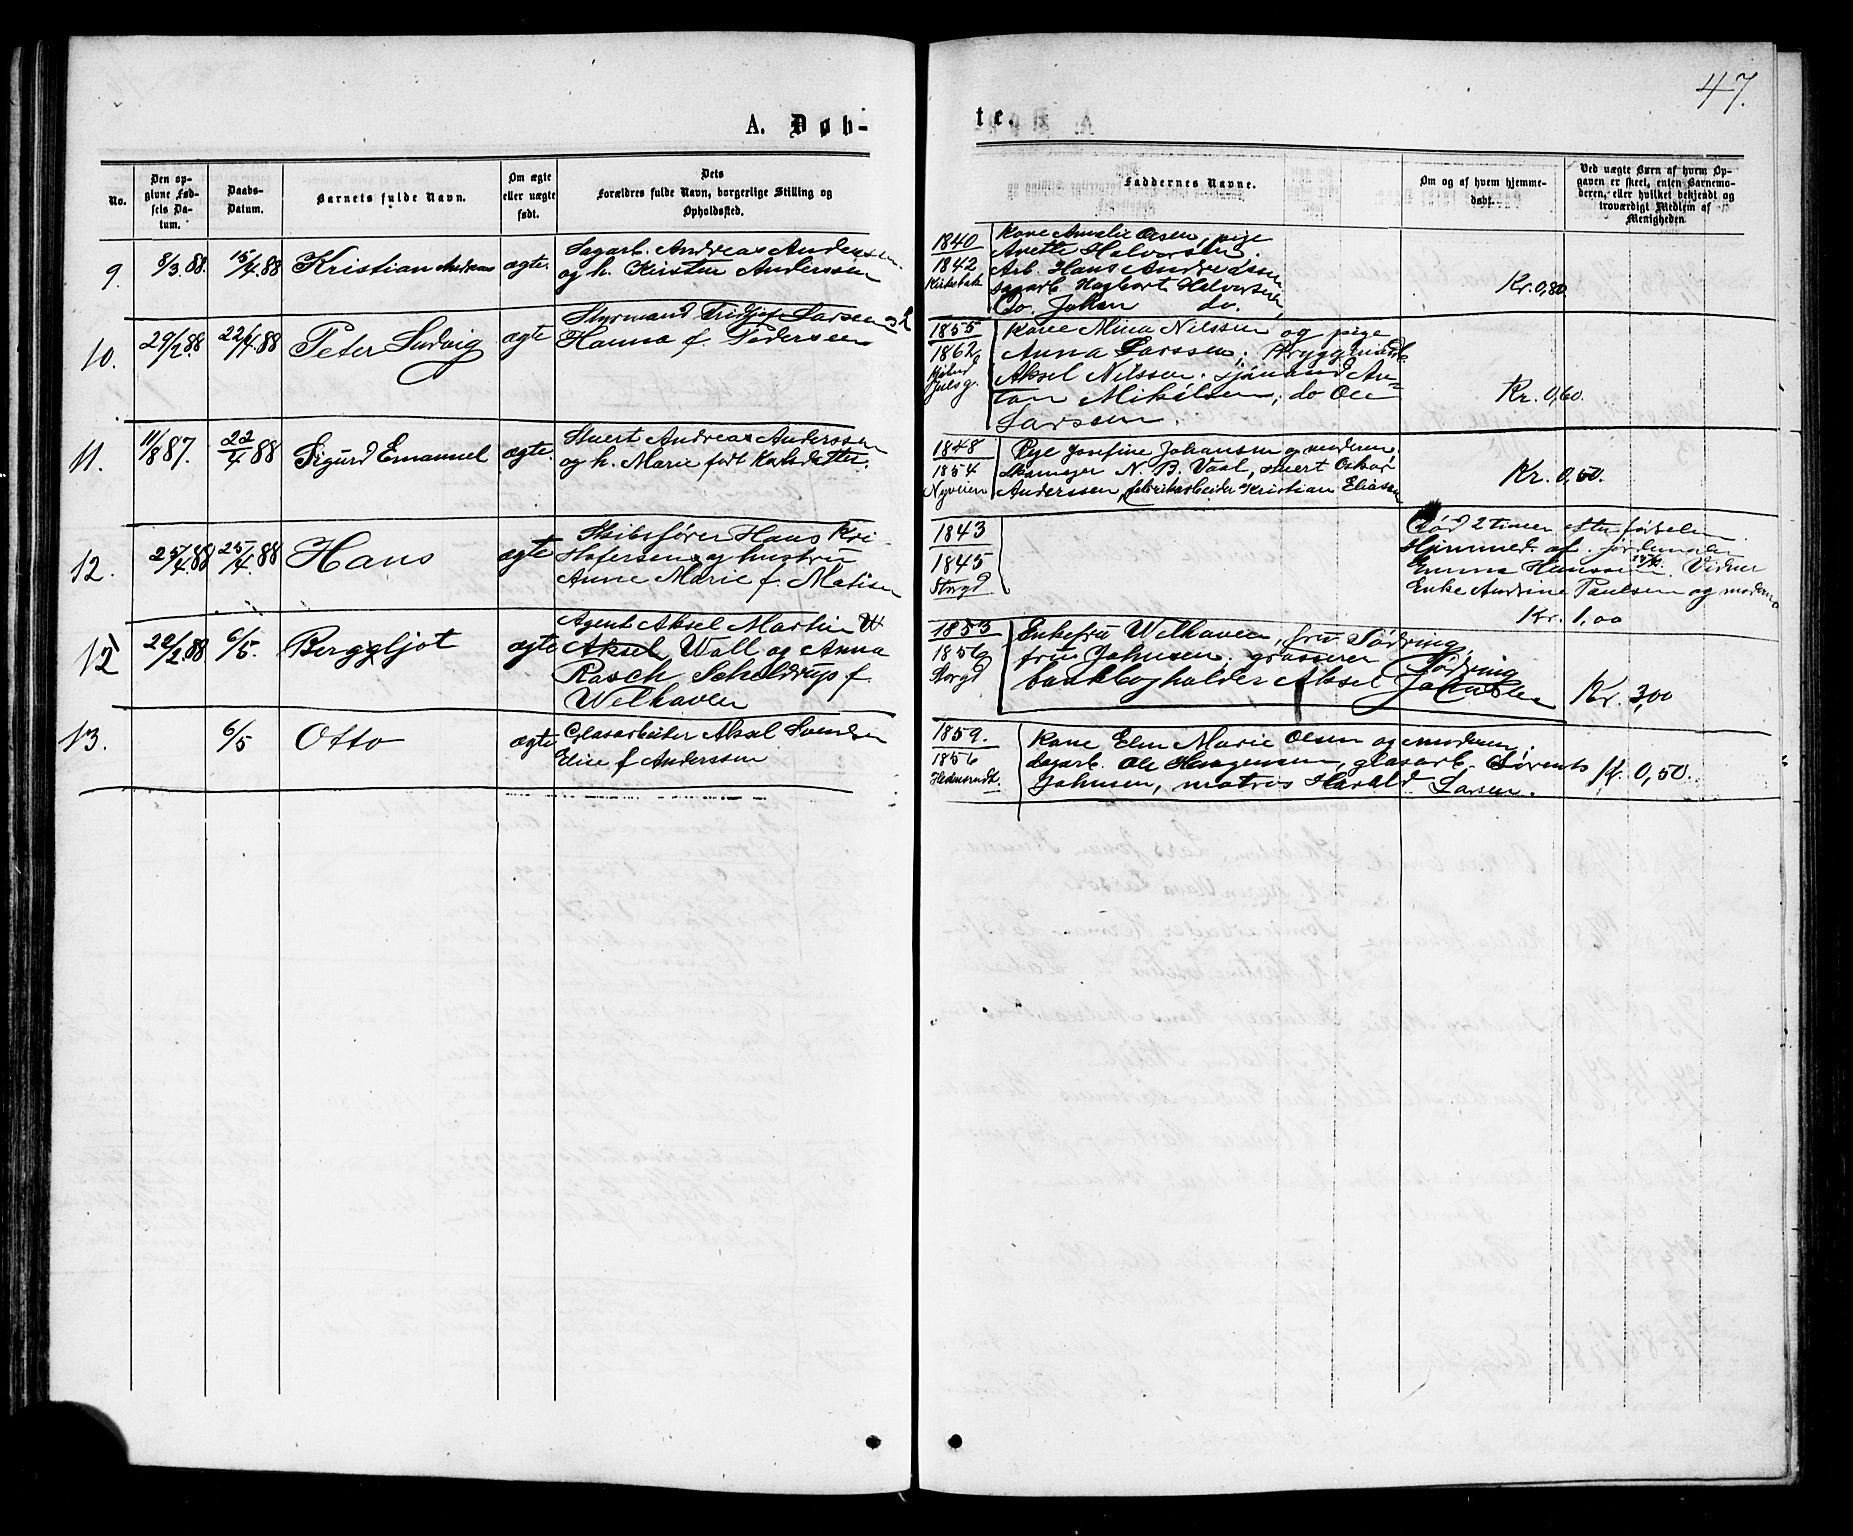 47.
A. Døb-
te.
No.
Den op-
givne Fød-
sels Da-
tum.
Daabs-
Datum.
Barnets fulde Navn.
Om ægte
eller uægte
født.
Dets
Forældres fulde Navn, borgerlige Stilling og
Opholdssted.
Faddernes Navne.
Om og af hvem hjemme-
døbt.
Ved uægte Børn af hvem Op-
gaven er skeet, enten Barnemo-
deren, eller hvilket bekjendt og
troværdigt Medlem af
Menigheden.
9.
8/3 88.
15/4 88
Kristian Andreas
ægte.
Sagarb. Andreas Anderssen
og h. Kirstin Anderssen
1840
1842
Kirkebak
Kone Amalie Olsen, pige
Anette Halvorsen.
Arb. Hans Andreassen
Sagarb. Hagbart Halvorsen
Do. Johan do.
Kr. 0,80
10.
29/2 88
22/4 88
Peter Ludvig
ægte
Styrmand Fridtjof Larsen og h
Hanna f. Pedersen
1855
1862
Kone Mina Nilssen og pige
Anna Larssen; Bryggeriarb.
Aksel Nilssen. Sjømand An-
ton Mikelsen, do Ole
Larssen.
Kr. 0,60.
11.
11/8 87.
22/4 88
Sigurd Emanuel
ægte.
Stuert Andreas Anderssen
og h. Marie født Karlsdatter.
1848
1854
Nyveien
Pige Josefine Johansen og moderen.
Skomager N. B. Vaal, stuert Oskar
Anderssen, fabrikarbeider Kristian Eliassen
Kr. 0,50.
12.
25/4 88
25/4 88
Hans
ægte
Skibsfører Hans Kri-
stofersen og hustru
Anne Marie f. Matisen
1843
1845
Storgd
Død 2 timer efter fødselen.
Hjemmed. af jordmoder
Emma Hanssen 25/4. Vidner
Enke Andrine Paulsen og moderen
Kr. 1,00
12
22/2 88
6/5.
Berggljot
ægte
Agent Aksel Martin W
Aksel Wall og Anna
Rasch Scheldrup f.
Welhaven
1853
1856
Storgd
Enkefru Welhaven, fru Sødring,
fru Johnsen, grosserer Sødring
bankbogholder Aksel Johnsen
Kr. 3,00
13.
6/5
Otto
ægte
Glasarbeider Aksel Svendsen
Elise f Anderssen
1859.
1856
Kone Elen Marie Olsen og moderen.
Sagarb. Ole Haagensen, glasarb. Sørents
Johnsen, matros Harald Larsen.
Kr. 0,50.